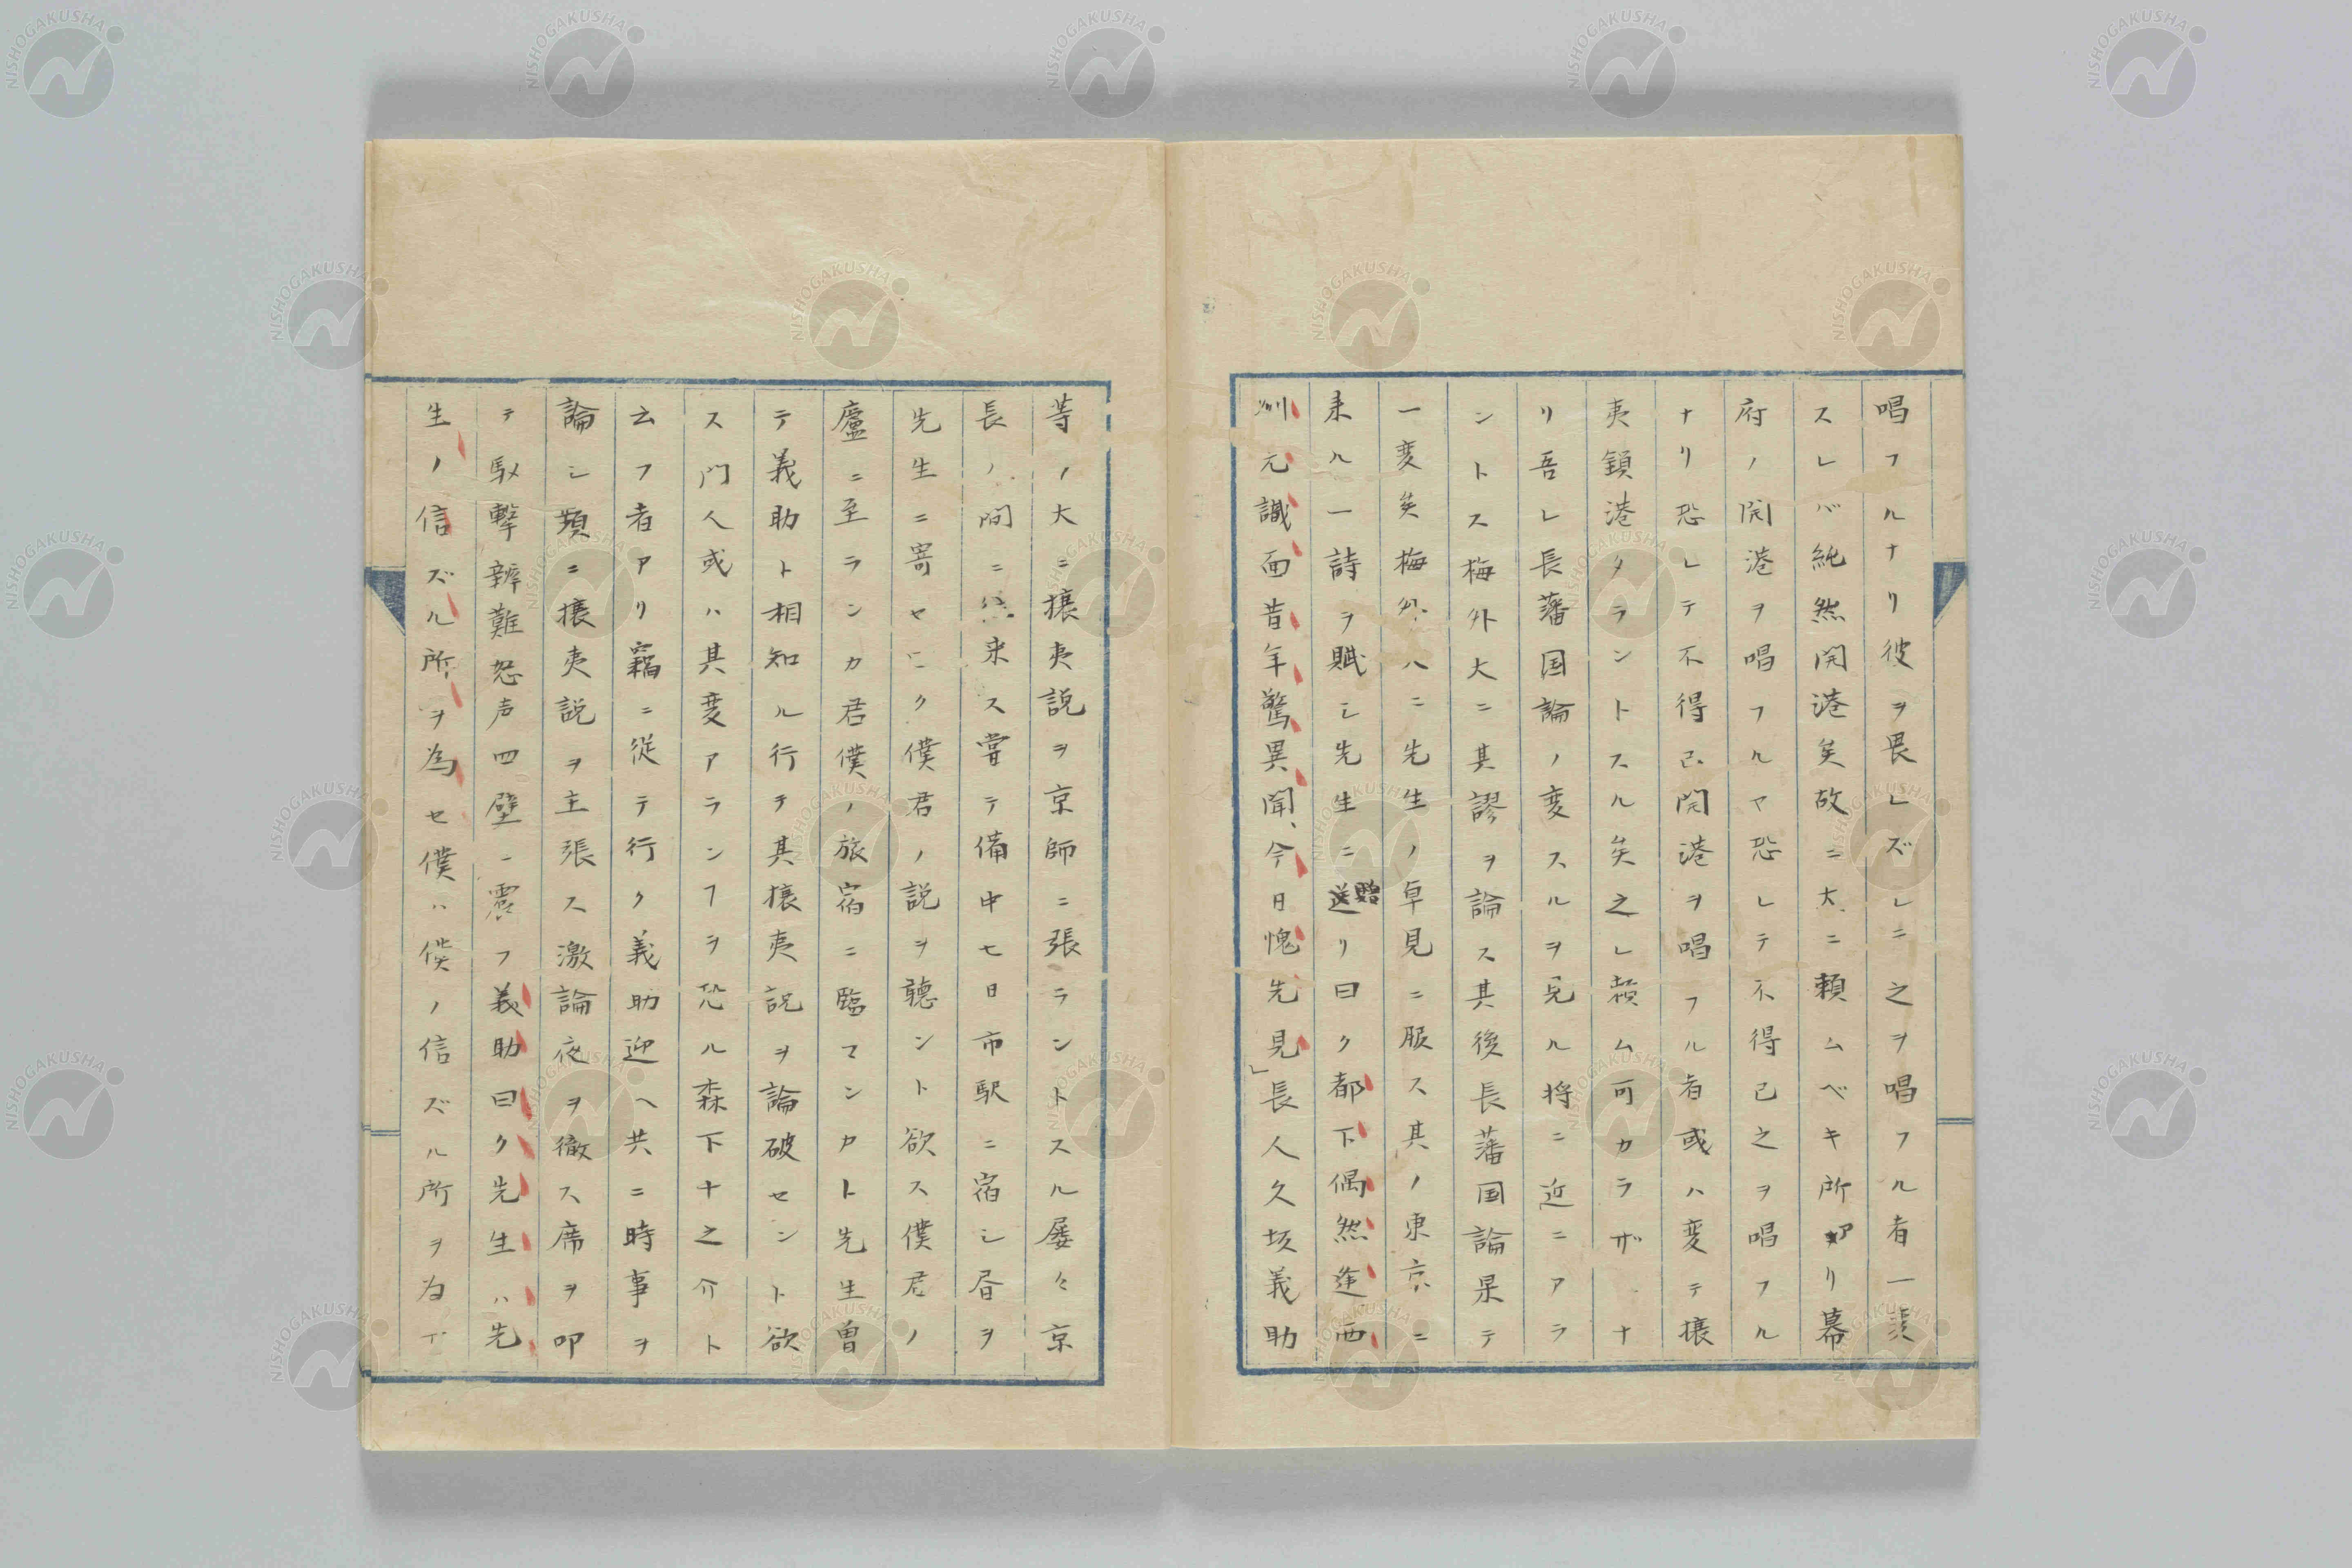 唱フルナリ彼ヲ畏レズシ之ヲ唱フル者一変
スレバ純然開港矣故ニ大ニ頼ムベキ所アリ幕
府ノ開港ヲ唱フルヤ恐レテ不得已之ヲ唱フル
ナリ恐レテ不得已開港ヲ唱フル者或ハ変テ攘
夷鎖港タラントスル矣之レ頼ム可カラザナ
リ吾レ長藩国論ノ変スルヲ見ル将ニ近ニアラ
ントス梅外大ニ其謬ヲ論ス其後長藩国論果テ
一変矣梅外ハニ先生ノ卓見ニ服ス其ノ東京ニ
来ル一詩ヲ賦シ先生ニ贈リ曰ク都下偶然逢西
洲元識面昔年驚異聞、今日愧先見」長人久坂義助
等ノ大ニ攘夷説ヲ京師ニ張ラントスル屡々京
長ノ間ニ往来ス嘗テ備中七日市駅ニ宿シ昼ヲ
先生ニ寄セ曰ク僕君ノ説ヲ聴ント欲ス僕君ノ
廬ニ至ランカ君僕ノ旅宿ニ臨マンカト先生曽
テ義助ト相知ル行テ其攘夷説ヲ論破セント欲
ス門人或ハ其変アランヿヲ恐ル森下十之介ト
云フ者アリ竊ニ従テ行ク義助迎ヘ共ニ時事ヲ
論シ頻ニ攘夷説ヲ主張ス激論夜ヲ徹ス席ヲ叩
テ駁撃辨難怒声四壁ニ震フ義助曰ク先生ハ先
生ノ信ズル所ヲ為セ僕ハ僕ノ信ズル所ヲ為
NISHOGAKUSHA